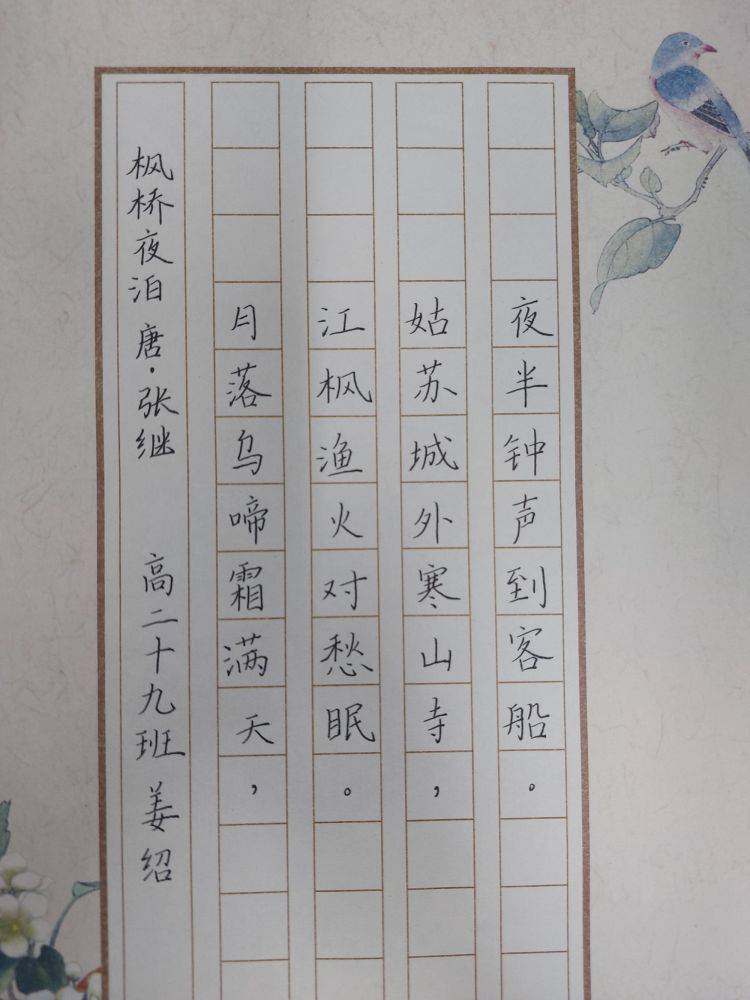 枫桥夜泊 唐·张继 高二十九班 姜绍
月落乌啼霜满天，
江枫渔火对愁眠。
姑苏城外寒山寺，
夜半钟声到客船。